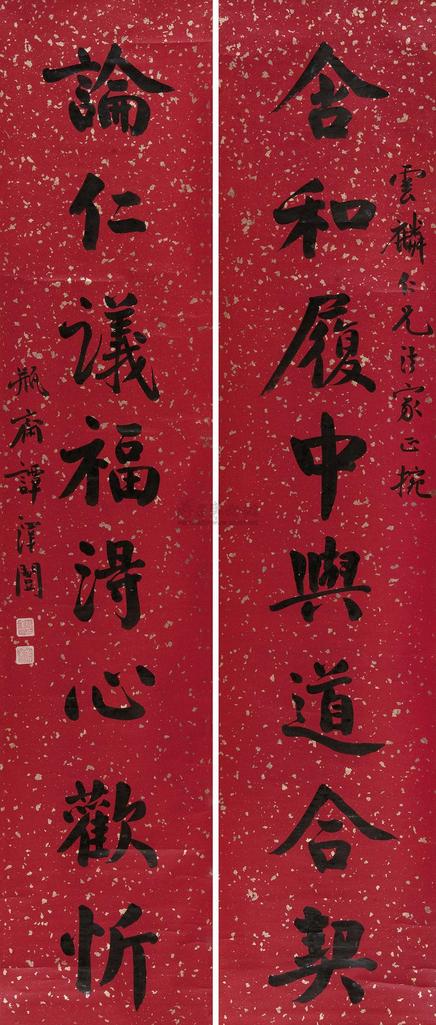 雲麟仁兄法家正捥
含和履中與道合契
論仁議福得心歡忻
瓶齋譚澤闓